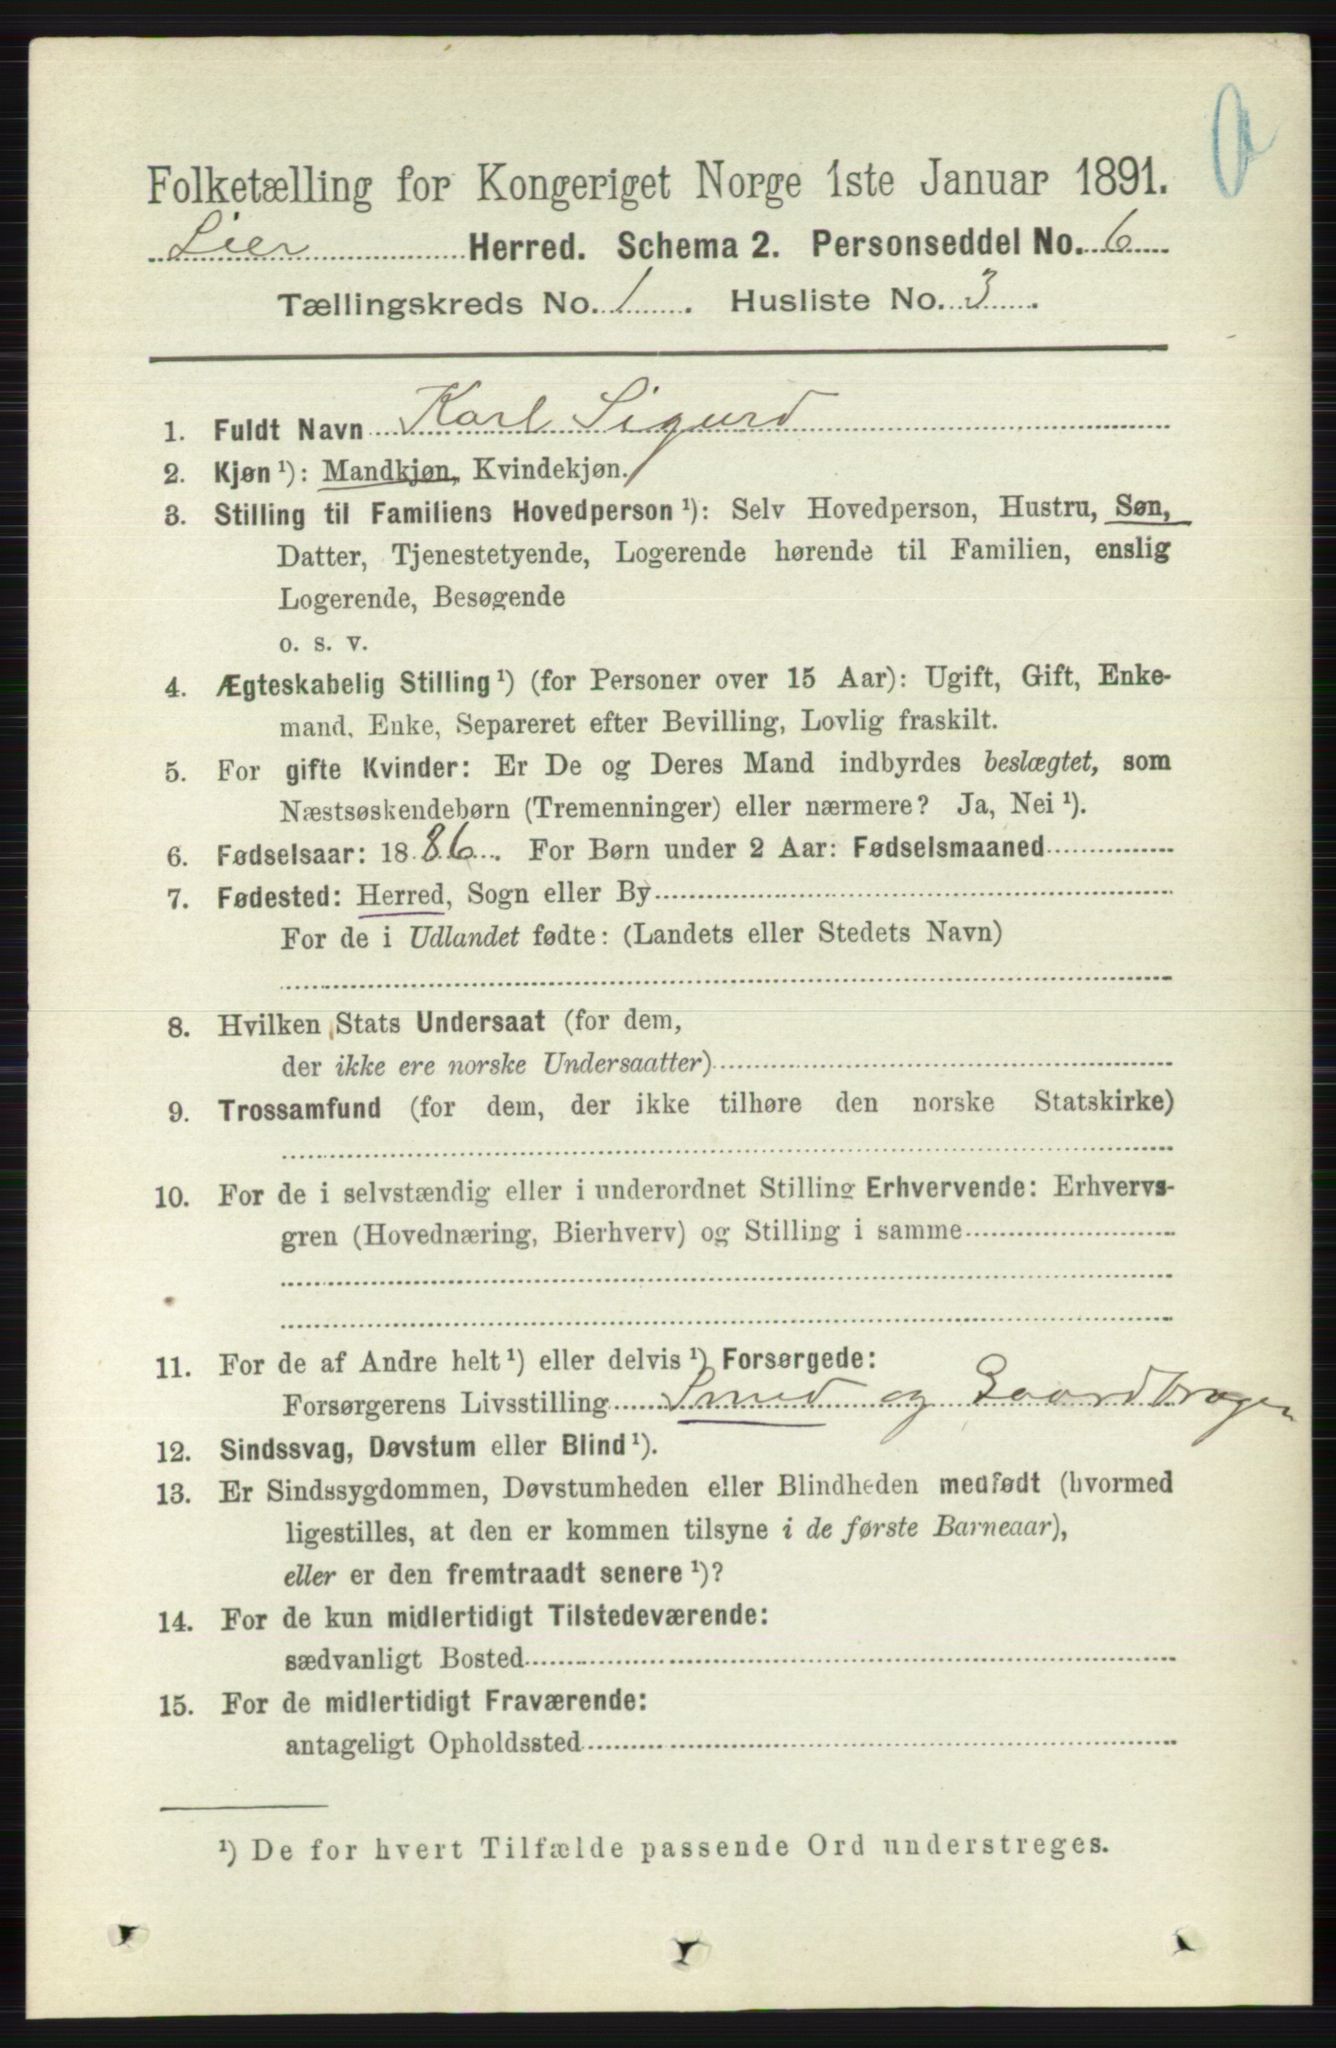 Folketælling for Kongeriget Norge 1ste Januar 1891.
Lier Herred. Schema 2. Personseddel No. 6
Tællingskreds No. 1. Husliste No. 3.
1. Fuldt Navn Karl Sigurd
2. Kjøn ¹): Mandkjøn, Kvindekjøn.
3. Stilling til Familiens Hovedperson ¹): Selv Hovedperson, Hustru, Søn,
Datter, Tjenestetyende, Logerende hørende til Familien, enslig
Logerende, Besøgende
o. s. v.
4. Ægteskabelig Stilling ¹) (for Personer over 15 Aar): Ugift, Gift, Enke-
mand, Enke, Separeret efter Bevilling, Lovlig fraskilt.
5. For gifte Kvinder: Er De og Deres Mand indbyrdes beslægtet, som
Næstsøskendebørn (Tremenninger) eller nærmere? Ja, Nei ¹).
6. Fødselsaar: 1886. For Børn under 2 Aar: Fødselsmaaned
7. Fødested: Herred, Sogn eller By
For de i Udlandet fødte: (Landets eller Stedets Navn)
8. Hvilken Stats Undersaat (for dem,
der ikke ere norske Undersaatter)
9. Trossamfund (for dem, der ikke tilhøre den norske Statskirke)
10. For de i selvstændig eller i underordnet Stilling Erhvervende: Erhvervs-
gren (Hovednæring, Bierhverv) og Stilling i samme
11. For de af Andre helt ¹) eller delvis ¹) Forsørgede:
Forsørgerens Livsstilling Smed og Gaardbruger
12. Sindssvag, Døvstum eller Blind ¹).
13. Er Sindssygdommen, Døvstumheden eller Blindheden medfødt (hvormed
ligestilles, at den er kommen tilsyne i de første Barneaar),
eller er den fremtraadt senere ¹)?
14. For de kun midlertidigt Tilstedeværende:
sædvanligt Bosted
15. For de midlertidigt Fraværende:
antageligt Opholdssted
¹) De for hvert Tilfælde passende Ord understreges.